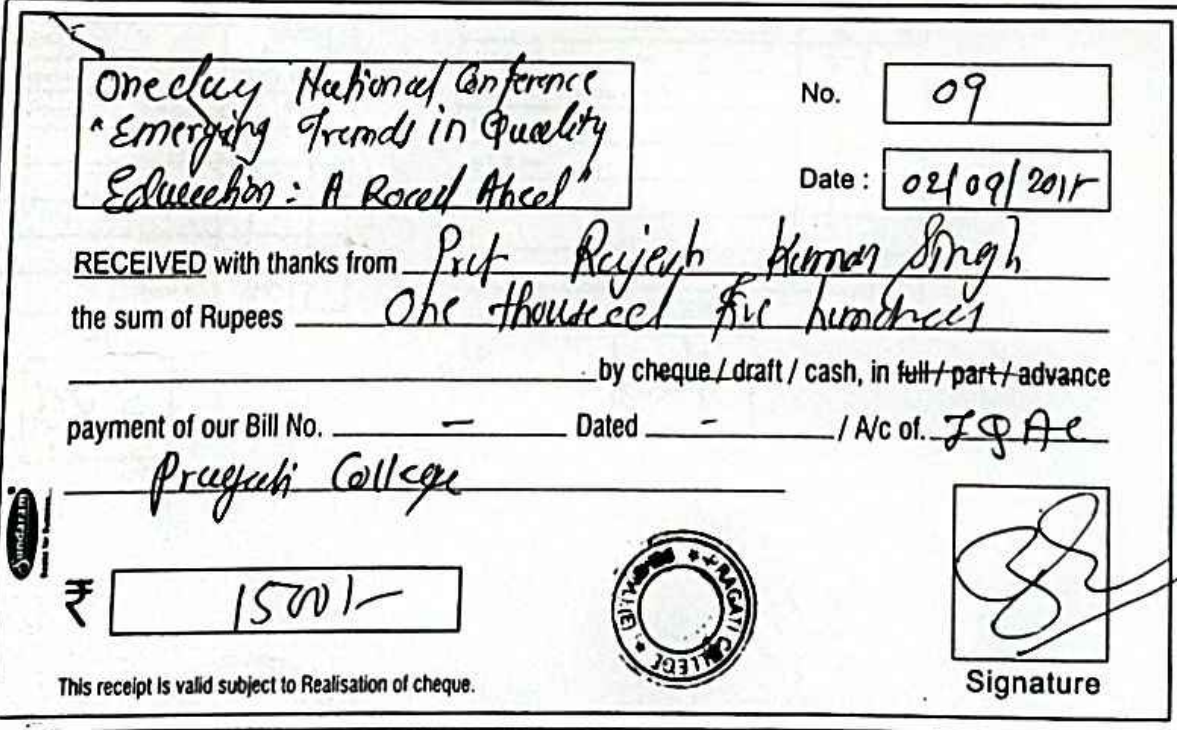 One day National Conference
"Emerging Trends in Quality
Education : A Road Ahead"
No. 09
Date : 02/09/201
RECEIVED with thanks from Prof Rajesh Kumar Singh
the sum of Rupees One thousand five hundred
by cheque / draft / cash, in full / part / advance
payment of our Bill No. - Dated - / A/c of. IQAC
Pragati College
Sundaram
₹ 1500/-
PRAGATI COLLEGE
This receipt is valid subject to Realisation of cheque.
Signature